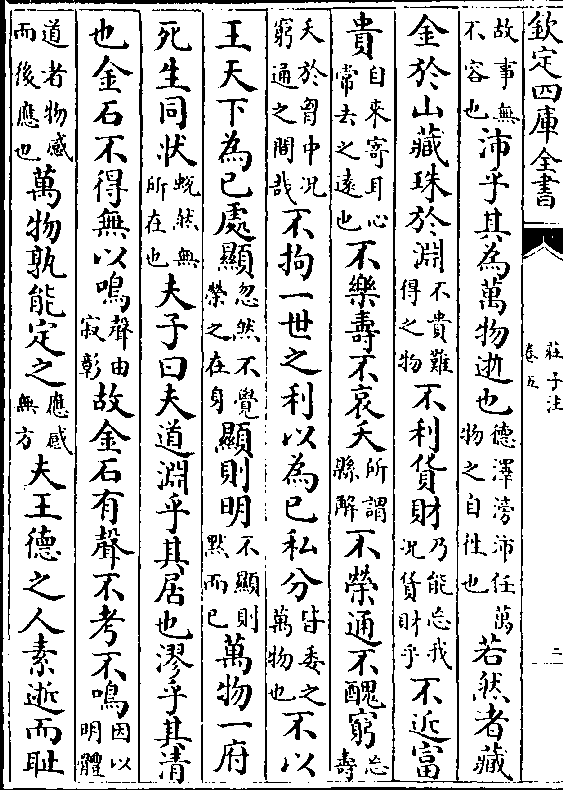 欽定四庫全書
莊子注
卷五
二
故事無不容也沛乎其為萬物逝也德澤滂沛任萬物之自往也若然者藏
金於山藏珠於淵不貴難得之物不利貨財乃能忘我況貨財乎不近富
貴自來寄耳心常去之遠也不樂壽不哀夭所謂縣解不榮通不醜窮忘壽
夭於胷中况窮通之間哉不拘一世之利以為已私分皆委之萬物也不以
王天下為已處顯忽然不覺榮之在身顯則明不顯則默而已萬物一府
死生同狀蛻然無所在也夫子曰夫道淵乎其居也漻乎其清
也金石不得無以鳴聲由寂彰故金石有聲不考不鳴因以明體
道者物感而後應也萬物孰能定之應感無方夫王德之人素逝而恥